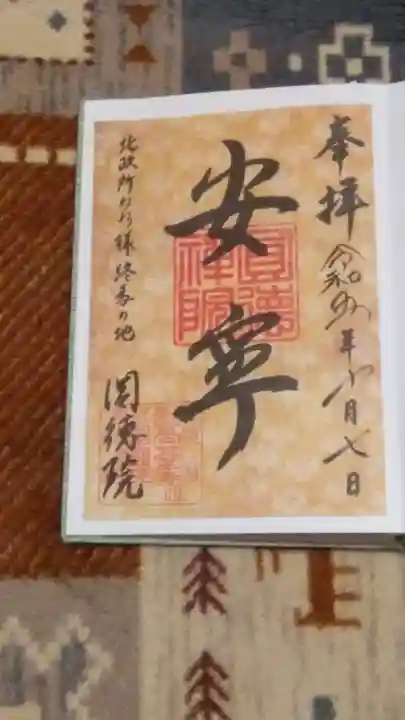 奉拝 令和四年十月七日
安寧
北政所ねね様終焉の地
圓徳院
圓德禅院